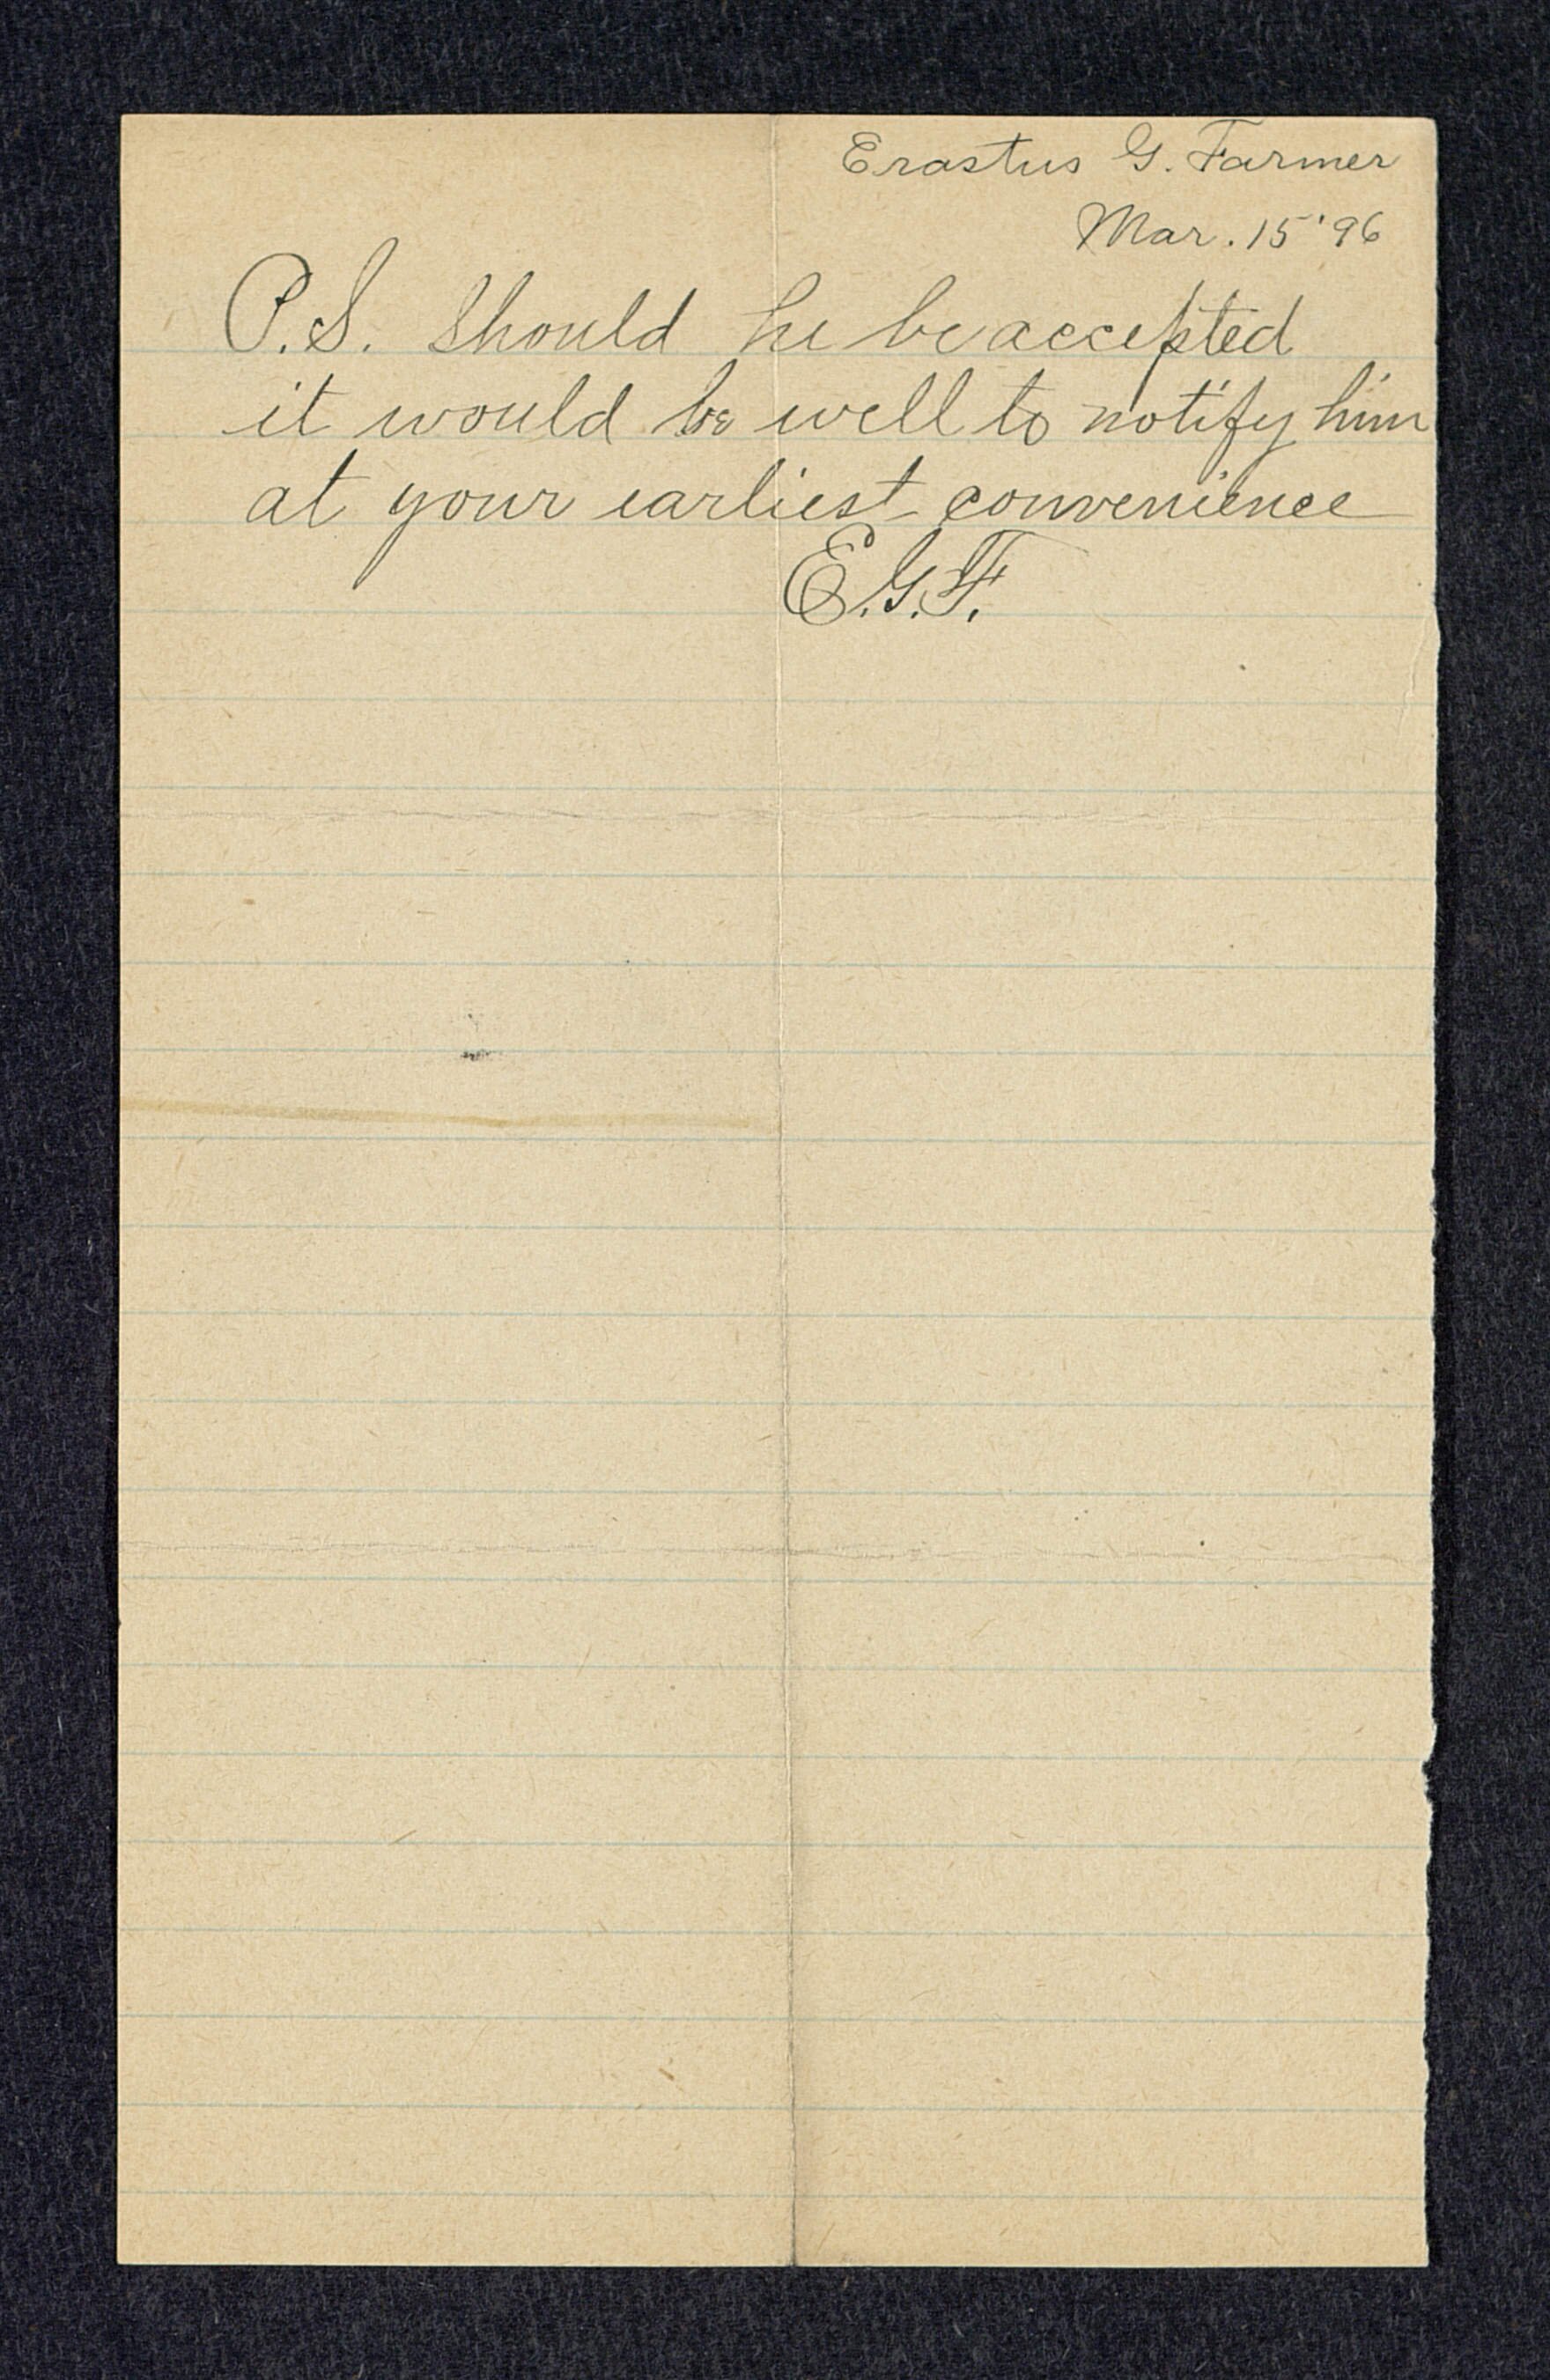 Erastus G. Farmer
Mar. 15 '96
P.S. Should he be accepted
it would be well to notify him
at your earliest convenience
E.G.F.